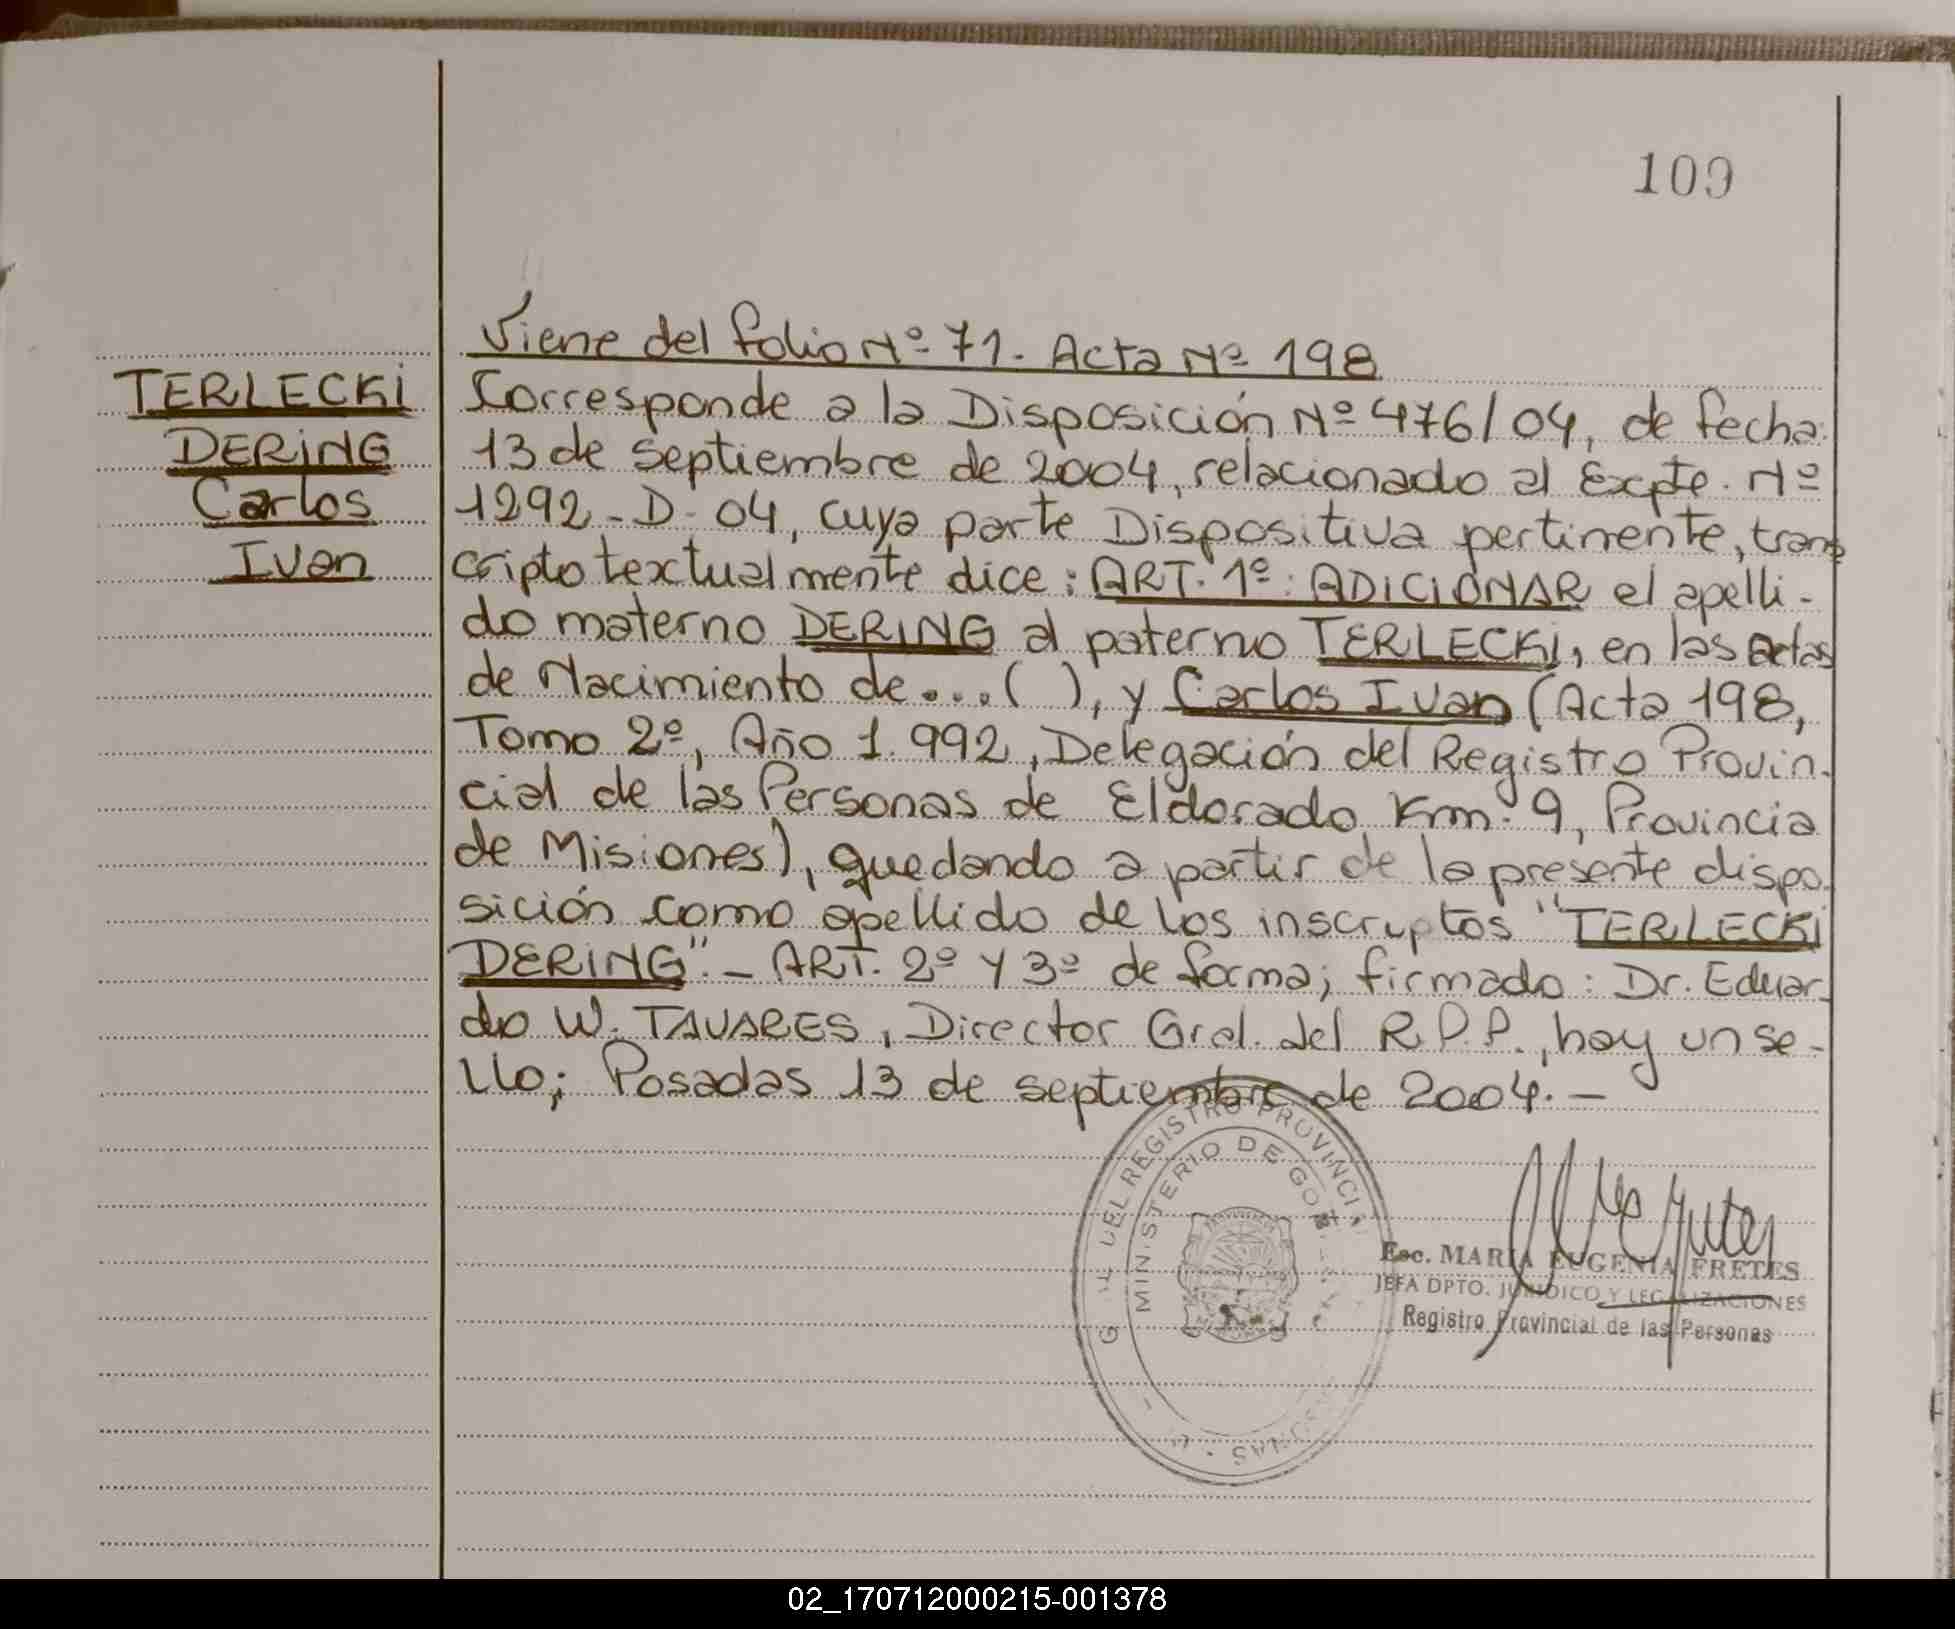 109
Viene del folio Nº 71. Acta Nº 198
TERLECKI
DERING
Carlos
Ivan
Corresponde a la Disposición Nº 476/04, de fecha
13 de septiembre de 2004, relacionado al Expte. Nº
1292-D-04, cuya parte Dispositiva pertinente, trans
cripto textualmente dice: ART. 1º: ADICIONAR el apelli-
do materno DERING al paterno TERLECKI, en las actas
de Nacimiento de...( ), y Carlos Ivan (Acta 198,
Tomo 2º, Año 1.992, Delegación del Registro Provin-
cial de las Personas de Eldorado Km. 9, Provincia
de Misiones), quedando a partir de la presente dispo-
sición como apellido de los inscriptos "TERLECKI
DERING".- ART. 2º y 3º de forma; firmado: Dr. Eduar-
do W. TAVARES, Director Gral. del R.P.P., hay un se-
llo; Posadas 13 de septiembre de 2004.-
DEL REGISTRO PROVINCI
MINISTERIO DE GOB
Esc. MARIA EUGENIA FRETES
JEFA DPTO. JURIDICO Y LEGALIZACIONES
Registro Provincial de las Personas
02_170712000215-001378